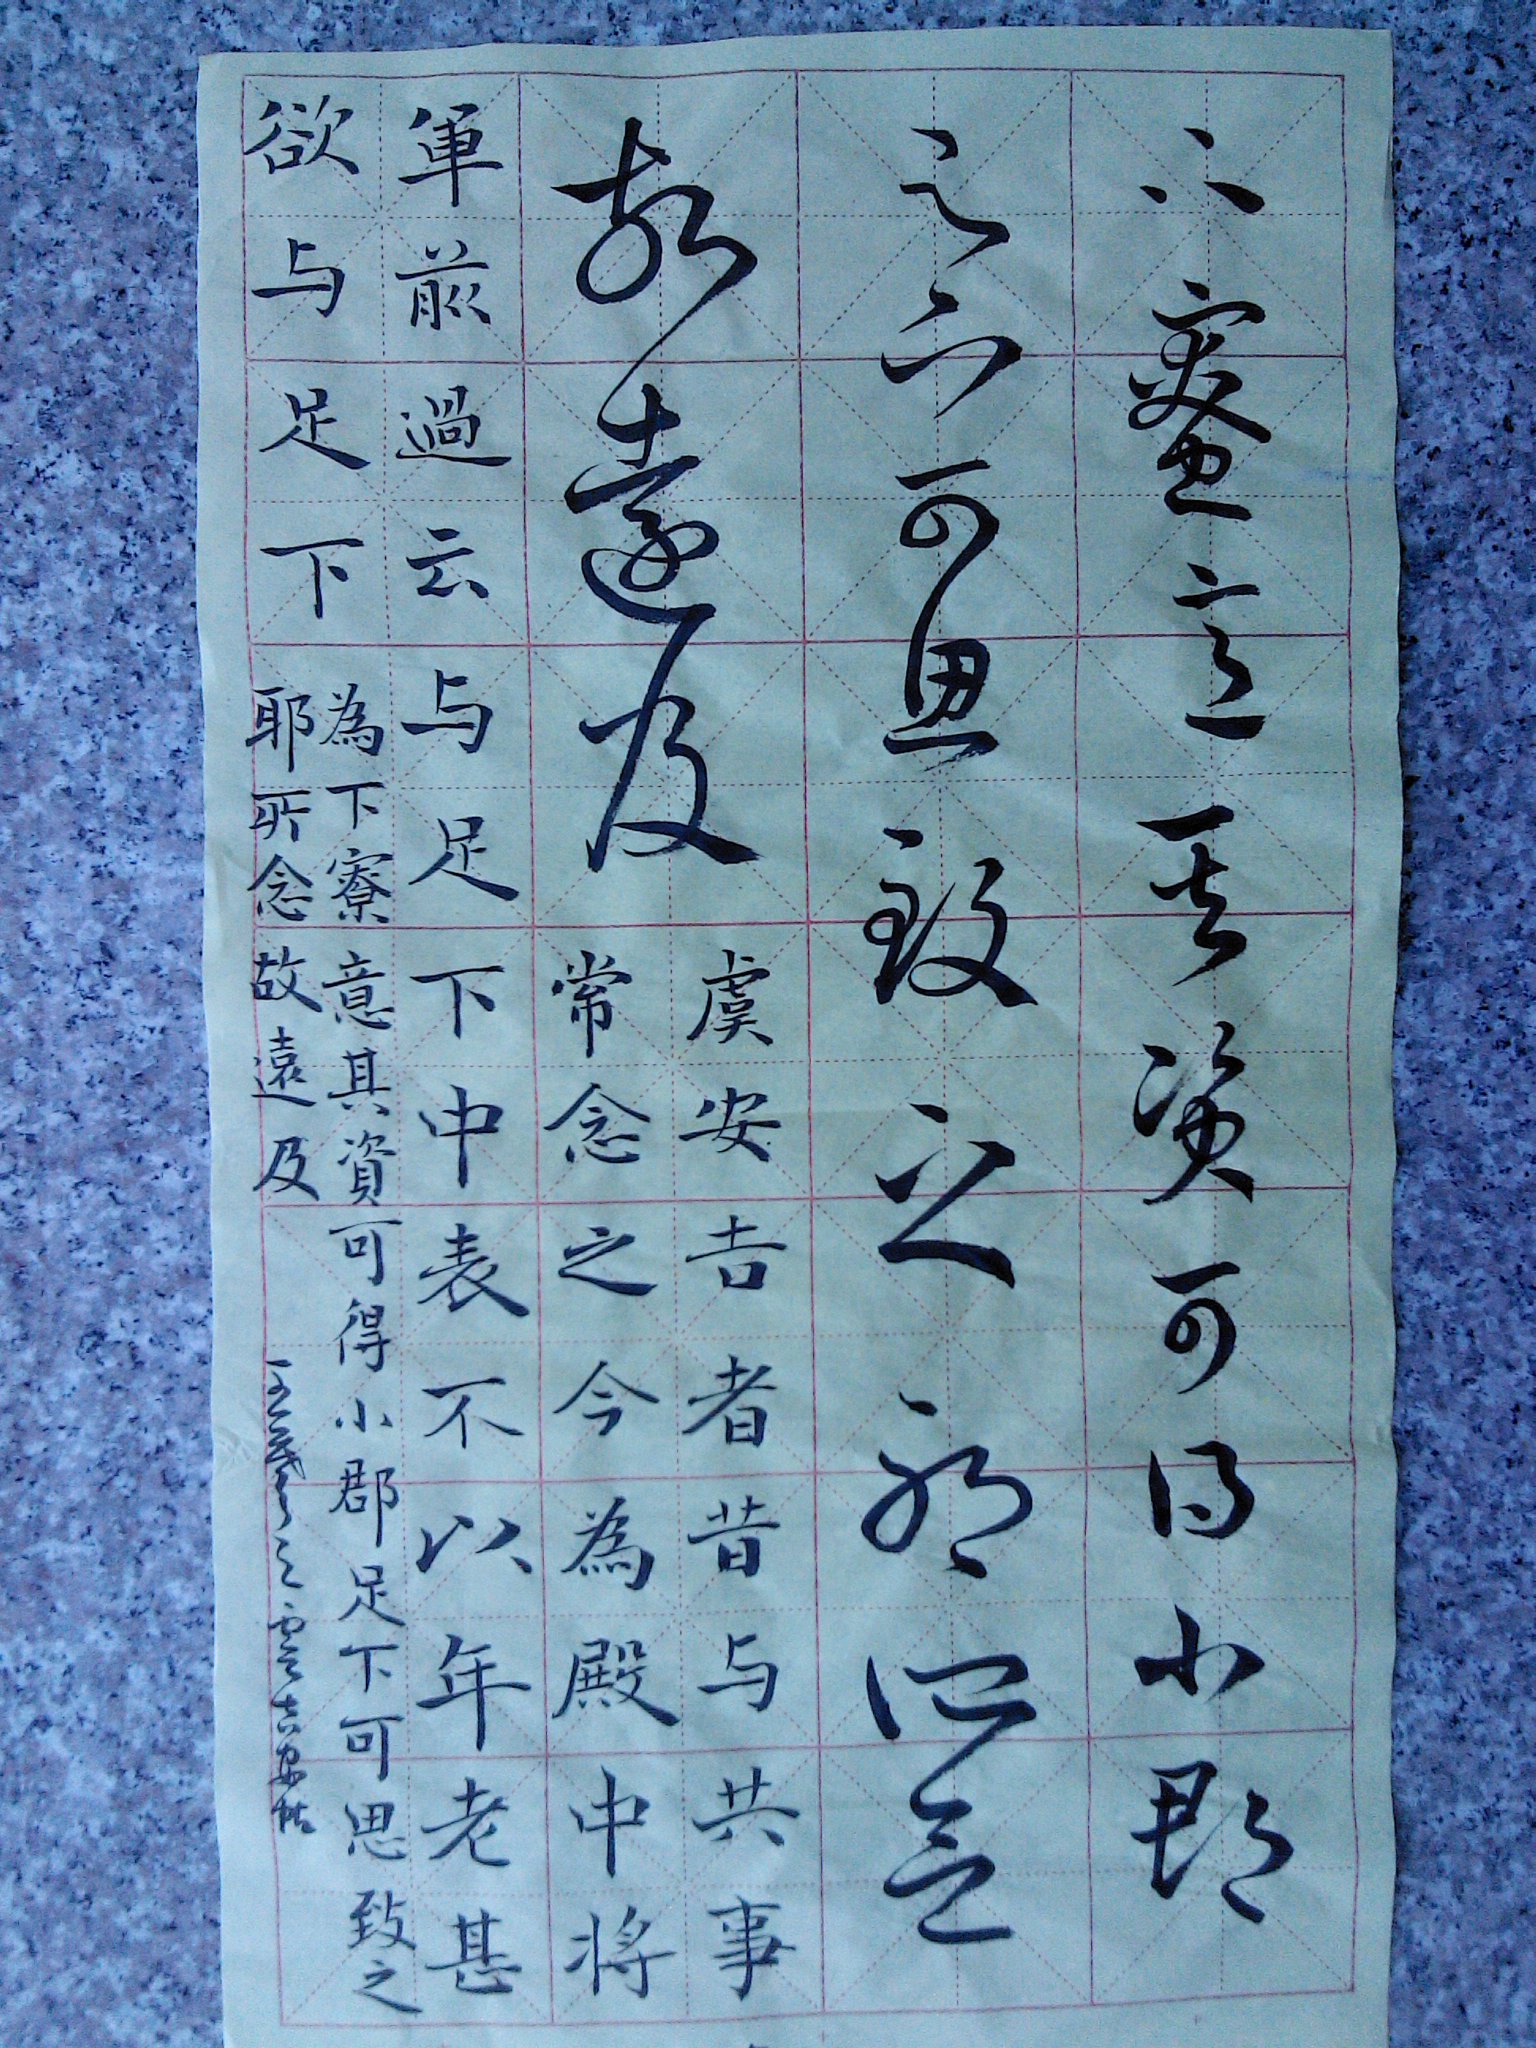 下寮意其資可得小郡
足下可思致之耶所念
故遠及
虞安吉者昔与共事
常念之今為殿中将
軍前過云与足下中表不以年老甚
欲与足下
為下寮意其資可得小郡足下可思致之
耶所念故遠及
王羲之虞安吉帖